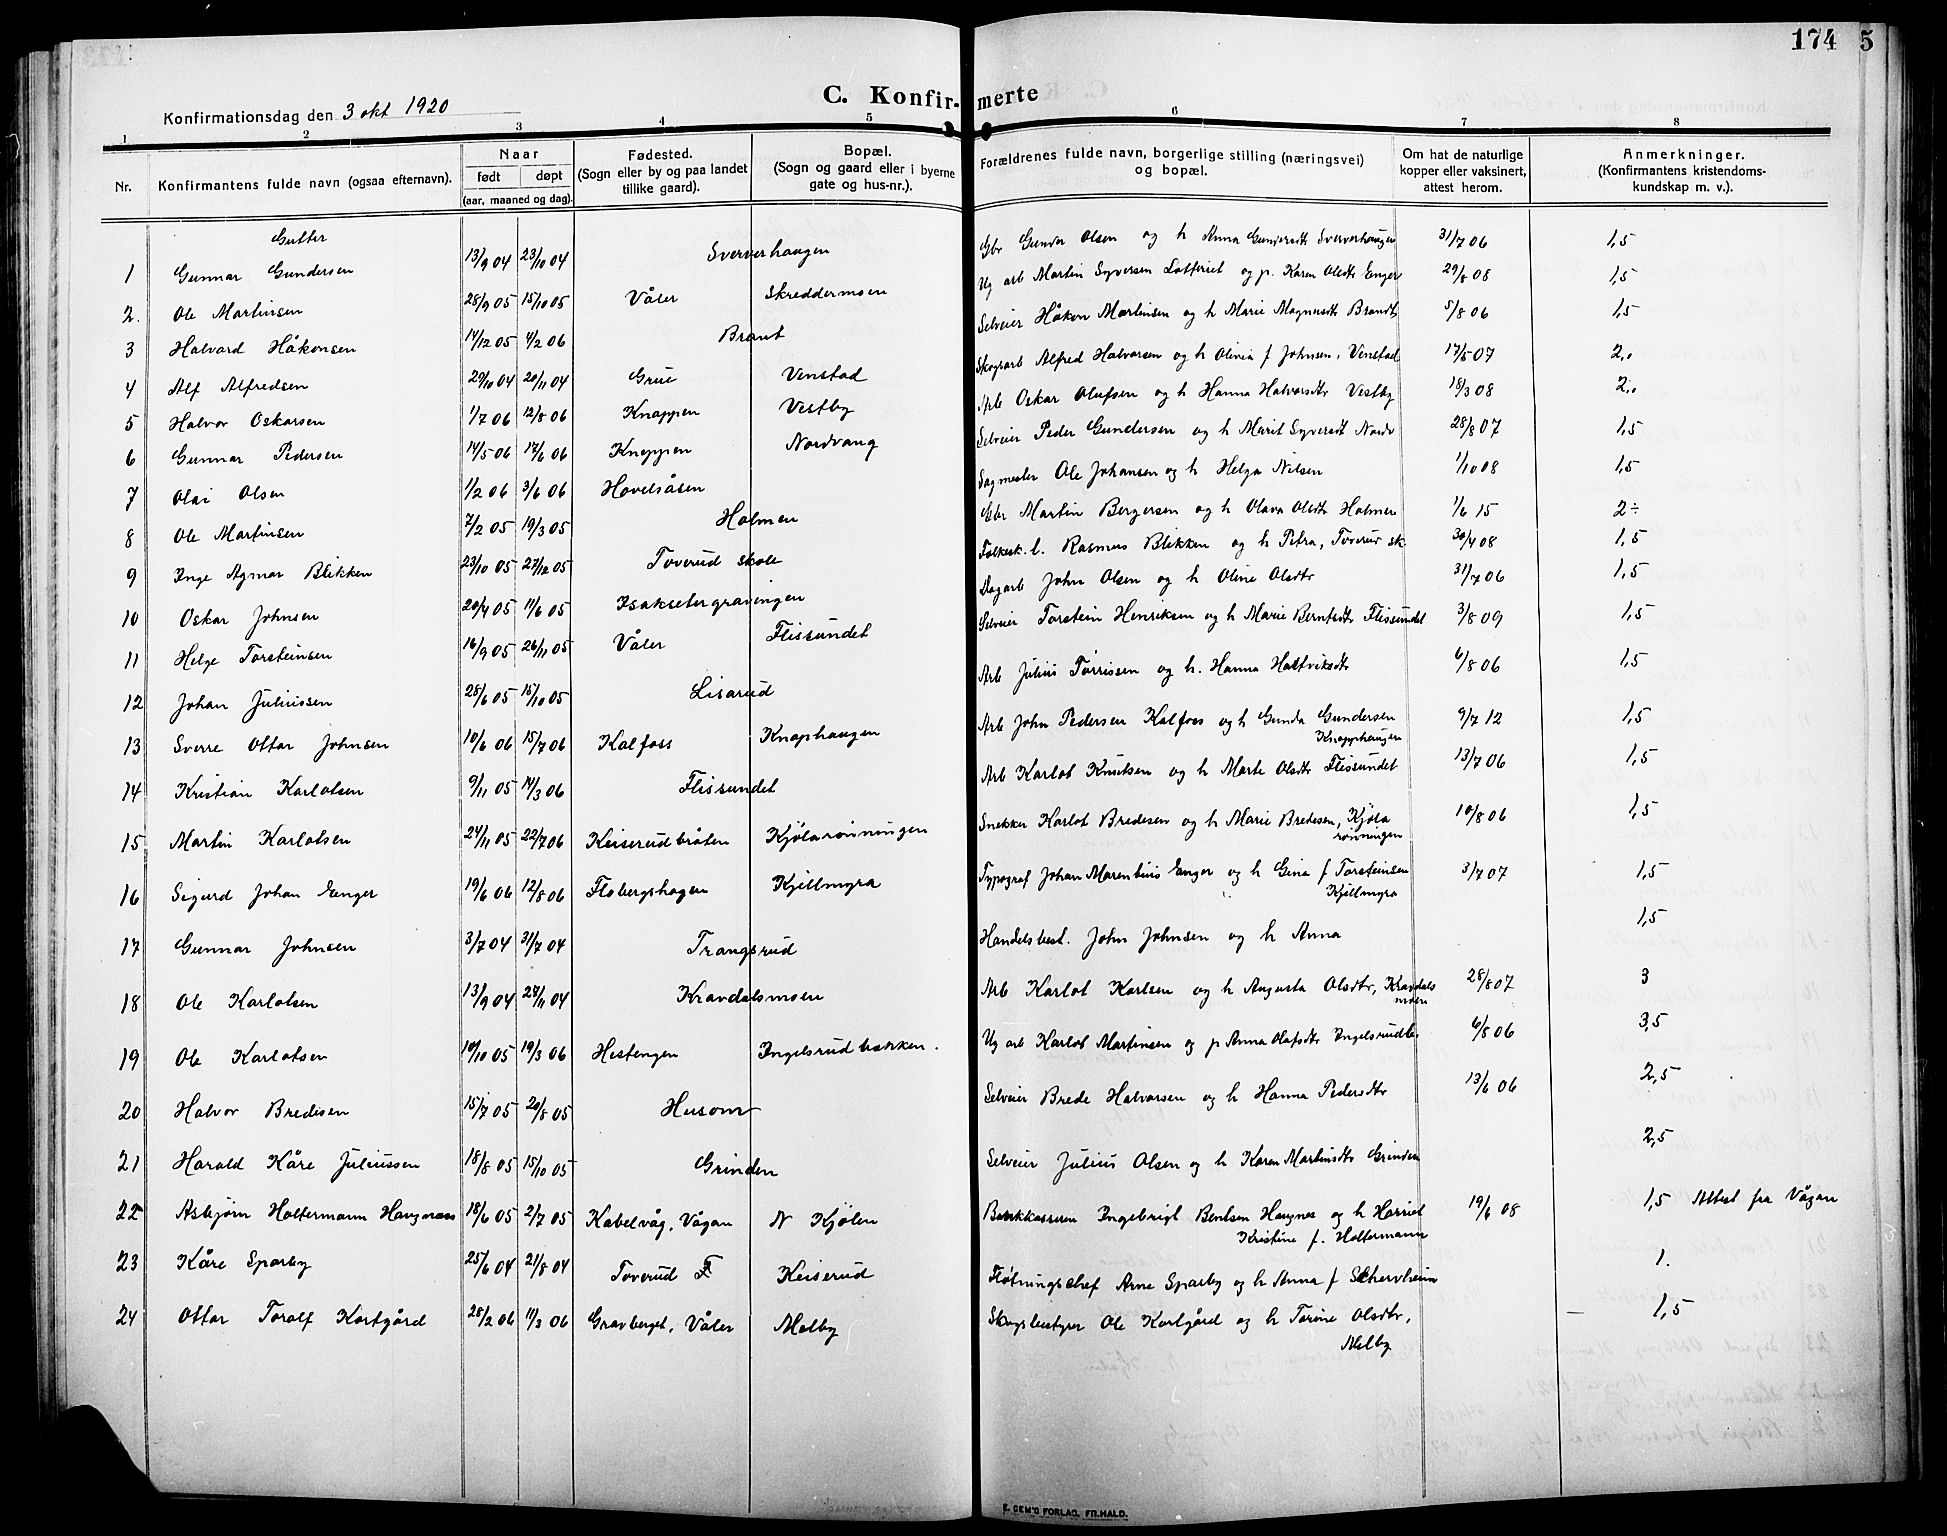 174 5
C. Konfirmerte
Konfirmationsdag den 3 okt 1920
1 2 3 4 5 6 7 8
Nr. Konfirmantens fulde navn (ogsaa efternavn). Naar født døpt (aar, maaned og dag). Fødested. (Sogn eller by og paa landet tillike gaard). Bopæl. (Sogn og gaard eller i byerne gate og hus-nr.). Forældrenes fulde navn, borgerlige stilling (næringsvei) og bopæl. Om hat de naturlige kopper eller vaksinert, attest herom. Anmerkninger. (Konfirmantens kristendomskundskap m. v.).
Gutter
1 Gunnar Gundersen 13/9 04 23/10 04 Sververhaugen Gbr Gunder Olsen og h Anna Gundersdtr Sververhaugen 31/7 06 1,5
2. Ole Martinsen 28/9 05 15/10 05 Våler Skreddermoen Ug arb Martin Syversen Lotteriet og p. Karen Olsdtr Enger 29/8 08 1,5
3 Halvard Håkonsen 14/12 05 4/2 06 Brant Selveier Håkon Martinsen og h Marie Magnusdtr Brandt 5/8 06 1,5
4 Alf Alfredsen 29/10 04 20/11 04 Grue Venstad Skogsarb Alfred Halvorsen og h Olivia f Johnsen, Venstad 17/5 07 2,0
5 Halvor Oskarsen 1/7 06 12/8 06 Knappen Vestby Arb Oskar Olufsen og h Hanna Halvorsdtr Vestby 18/3 08 2,0
6 Gunnar Pedersen 14/5 06 17/6 06 Knappen Nordvang Selveier Peder Gundersen og h Marit Syversdt Nordv 28/8 07 1,5
7 Olai Olsen 1/2 06 3/6 06 Hovelsåsen Sagmester Ole Johansen og h Helga Nilsen 1/10 08 1,5
8 Ole Martinsen 7/2 05 19/3 05 Holmen Gbr Martin Bergersen og h Olava Olsdtr Holmen 1/6 15 2÷
9 Inge Agmar Blikken 23/10 05 27/12 05 Toverud skole Folkesk. l. Rasmus Blikken og h Petra, Toverud sk. 30/4 08 1,5
10 Oskar Johnsen 20/4 05 11/6 05 Isaksetergravingen Dagarb John Olsen og h Oline Olsdtr 31/7 06 1,5
11 Helge Torsteinsen 16/9 05 26/11 05 Våler Flissundet Selveier Torstein Henriksen og h Marie Berntsdtr Flissundet 3/8 09 1,5
12 Johan Juliussen 28/6 05 15/10 05 Lisarud Arb Julius Torrissen og h. Hanna Halfviksdtr 6/8 06 1,5
13 Sverre Ottar Johnsen 10/6 06 15/7 06 Kalfoss Knaphaugen Arb John Pedersen Kalfoss og h Gunda Gundersen Knapphaugen 9/7 12 1,5
14 Kristian Karlotsen 9/11 05 14/3 06 Flissundet Arb Karlot Knutsen og h Marte Olsdtr Flissundet 13/7 06 1,5
15 Martin Karlotsen 24/11 05 22/7 06 Keiserudbråten Kjølarønningen Snekker Karlot Bredesen og h Marie Bredesen, Kjølarønningen 10/8 06 1,5
16 Sigurd Johan Enger 19/6 06 12/8 06 Flobergshagen Kjellmyra Typograf Johan Marentius Enger og h Gina f Torsteinsen Kjellmyra 3/7 07 1,5
17 Gunnar Johnsen 3/7 04 31/7 04 Trangsrud Handelsbest. John Johnsen og h Anna 1,5
18 Ole Karlotsen 13/9 04 24/11 04 Kravdalsmoen Arb Karlot Karlsen og h Augusta Olsdtr, Kravdalsmoen 28/8 07 3
19 Ole Karlotsen 10/10 05 19/3 06 Hestengen Ingelsrudbakken. Ug arb Karlot Martinsen og p Anna Olafsdtr Ingelsrudb. 6/8 06 3,5
20 Halvor Bredesen 15/7 05 20/8 05 Husom Selveier Brede Halvorsen og h Hanna Pedersdtr 13/6 06 2,5
21 Harald Kåre Juliussen 18/8 05 15/10 05 Grinden Selveier Julius Olsen og h Karen Martinsdtr Grinden 2,5
22 Asbjørn Holtermann Haugnæss 18/6 05 2/7 05 Kabelvåg, Vågan N Kjølen Bankkasserer Ingebrigt Bentsen Haugnes og h Harriet Kristine f. Holtermann 19/6 08 1,5 Attest fra Vågan
23 Kåre Sparby 25/6 04 21/8 04 Toverud F Keiserud Fløtningschef Arne Sparby og h Anna f Schervheim 1.
24 Ottar Toralf Kortgård 28/2 06 11/3 06 Gravberget, Våler Melby Skogsbestyrer Ole Kortgård og h Torine Olsdtr, Melby — 1,5
E. SEM'S FORLAG, FR.HALD.